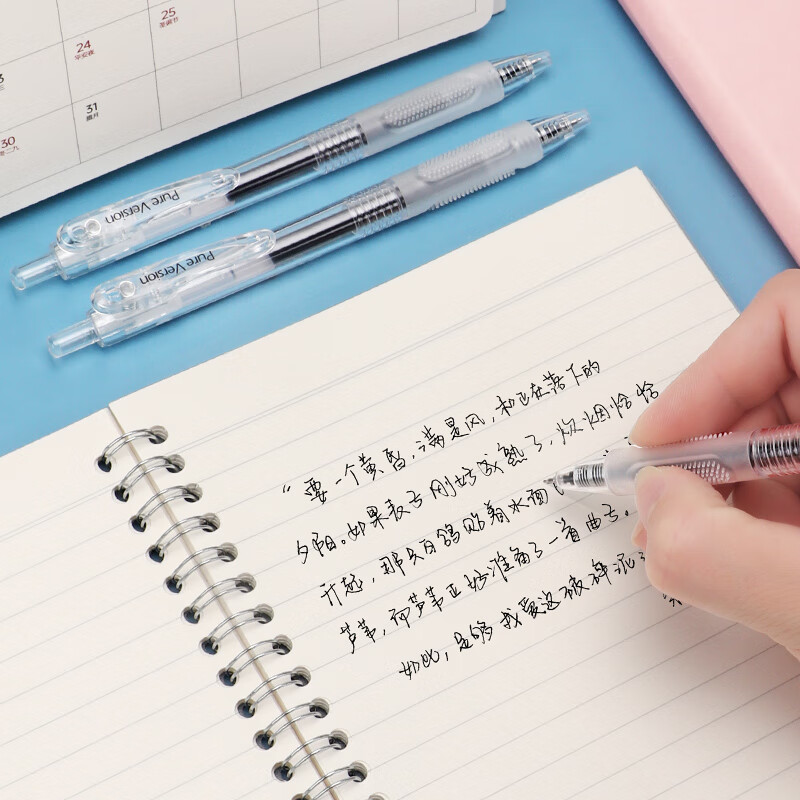 25
圣诞节
24
平安夜
31
腊月
30
Pure Version
Pure Version
“要一个黄昏，满是风，和正在落下的
夕阳。如果麦子刚好成熟了，炊烟恰恰
升起，那只白鸽贴着水面
芦苇，而芦苇正好准备了一首曲子。
如此，足够我爱这破碎泥